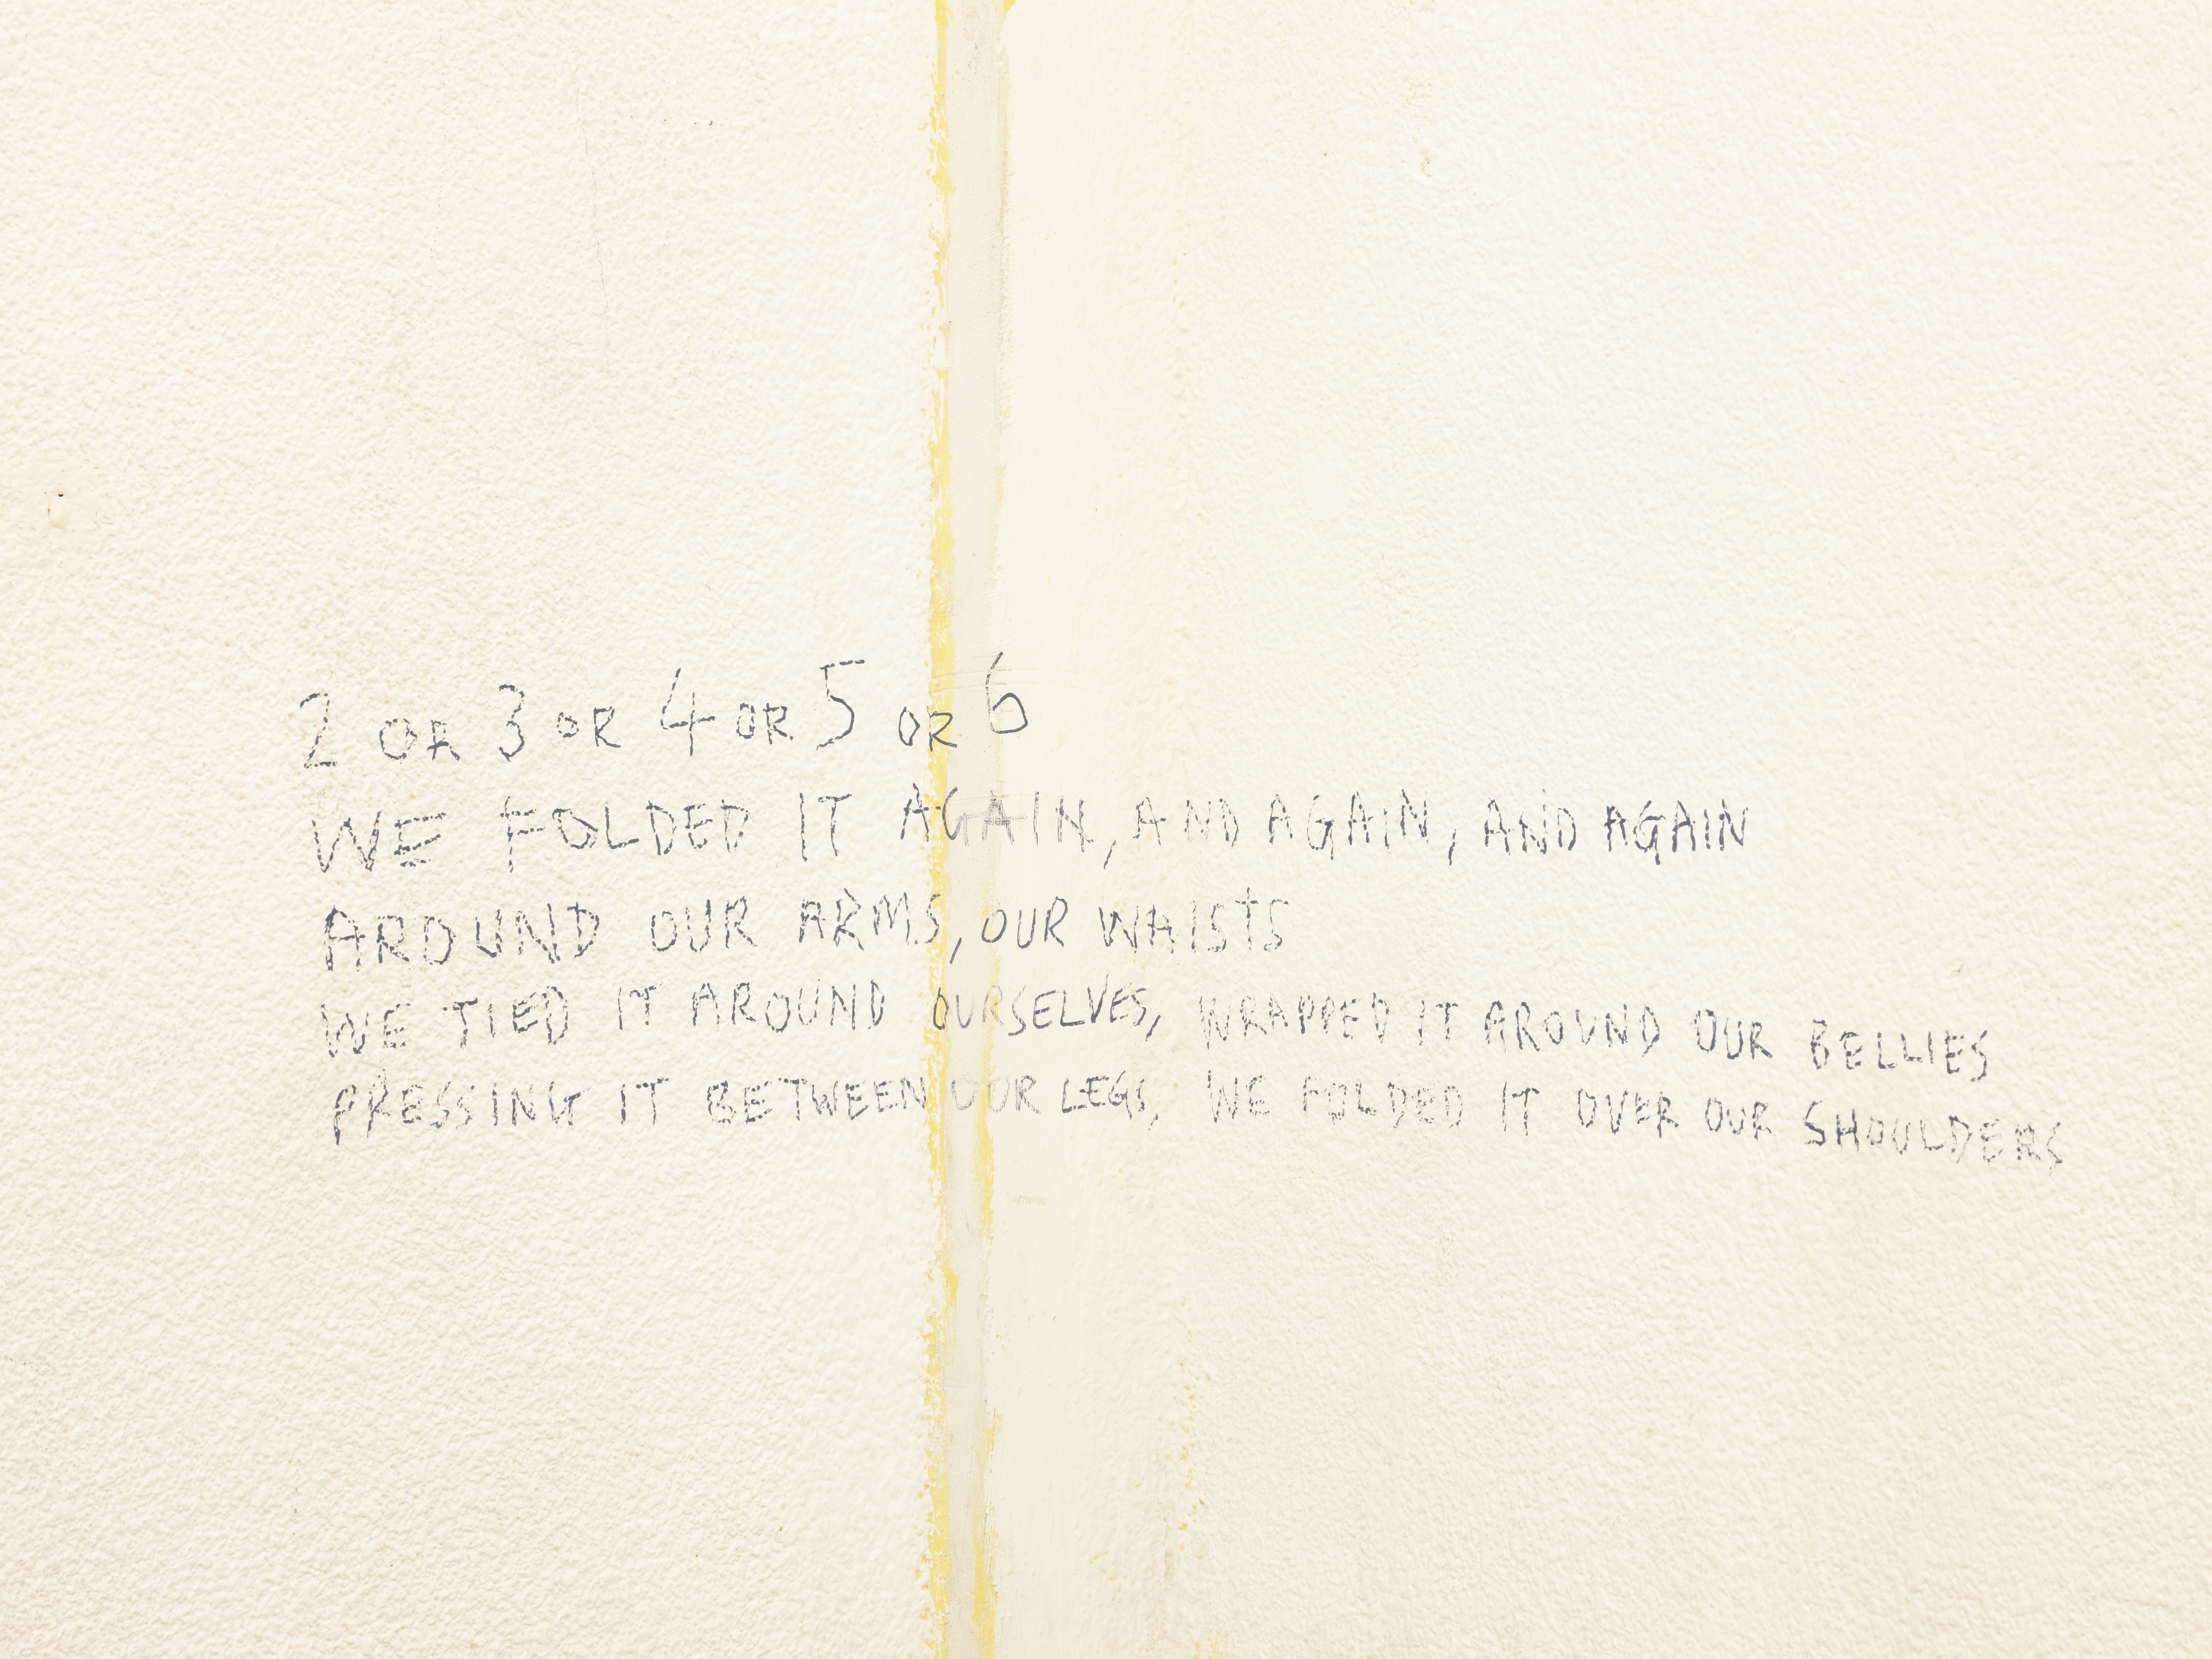 2 OR 3 OR 4 OR 5 OR 6
WE FOLDED IT AGAIN, AND AGAIN, AND AGAIN
AROUND OUR ARMS, OUR WAISTS
WE TIED IT AROUND OURSELVES, WRAPPED IT AROUND OUR BELLIES
PRESSING IT BETWEEN OUR LEGS, WE FOLDED IT OVER OUR SHOULDERS